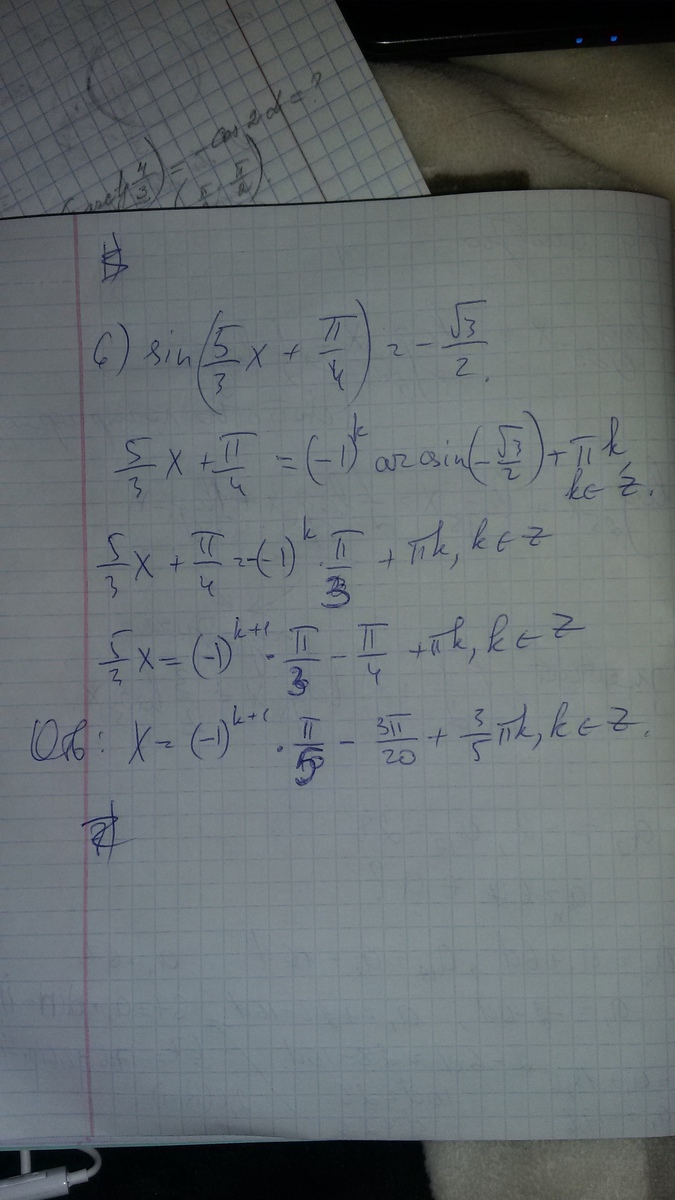 - cos 2α = ?
4/3) =
6) sin(5/3 x + π/4) = - √3/2.
5/3 x + π/4 = (-1)^k arcsin(-√3/2) + πk,
k ∈ Z.
5/3 x + π/4 = -(-1)^k · π/3 + πk, k ∈ Z
5/3 x = (-1)^{k+1} · π/3 - π/4 + πk, k ∈ Z
Отв: x = (-1)^{k+1} · π/5 - 3π/20 + 3/5 πk, k ∈ Z.